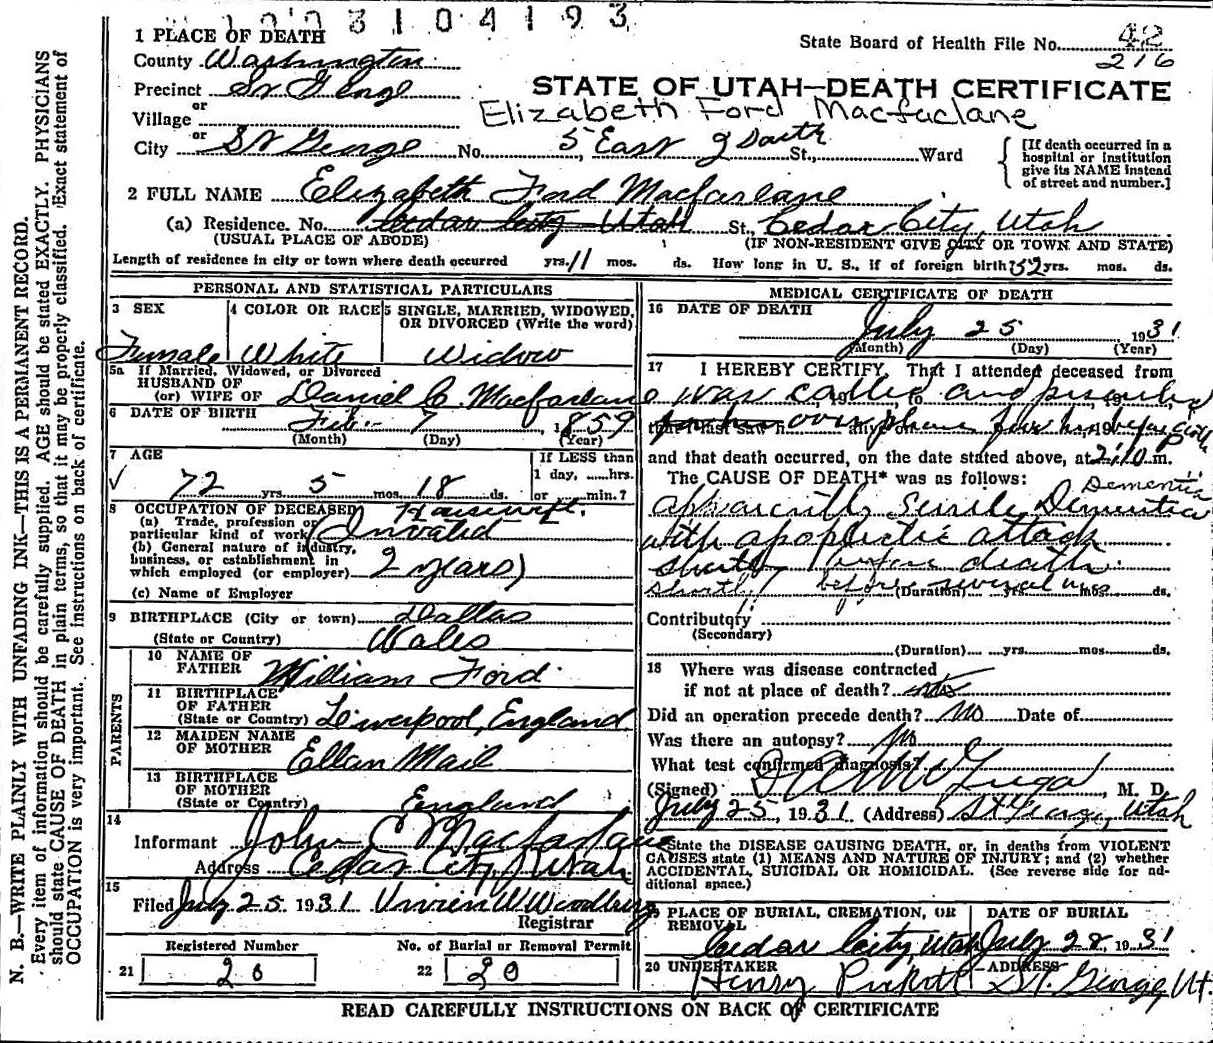 1003104193
1 PLACE OF DEATH
State Board of Health File No. 42
216
County Washington
Precinct St George
STATE OF UTAH—DEATH CERTIFICATE
or
Village
Elizabeth Ford Macfarlane
or
City St George No. 5 East 9 South St., Ward
[If death occurred in a hospital or institution give its NAME instead of street and number.]
2 FULL NAME Elizabeth Ford Macfarlane
(a) Residence. No. Cedar City Utah St., Cedar City, Utah
(USUAL PLACE OF ABODE) (IF NON-RESIDENT GIVE CITY OR TOWN AND STATE)
Length of residence in city or town where death occurred yrs. 11 mos. ds. How long in U. S., if of foreign birth? 52 yrs. mos. ds.
PERSONAL AND STATISTICAL PARTICULARS
3 SEX
Female
4 COLOR OR RACE
White
5 SINGLE, MARRIED, WIDOWED,
OR DIVORCED (Write the word)
Widow
5a If Married, Widowed, or Divorced
HUSBAND OF
(or) WIFE OF Daniel C. Macfarlane
6 DATE OF BIRTH
Feb. 7, 1859
(Month) (Day) (Year)
7 AGE
72 yrs. 5 mos. 18 ds.
If LESS than
1 day, ......hrs.
or ......min.?
8 OCCUPATION OF DECEASED Housewife.
(a) Trade, profession or
particular kind of work (Invalid
(b) General nature of industry,
business, or establishment in
which employed (or employer) 2 years)
(c) Name of Employer
9 BIRTHPLACE (City or town) Dallas
(State or Country) Wales
PARENTS
10 NAME OF
FATHER William Ford
11 BIRTHPLACE
OF FATHER
(State or Country) Liverpool, England
12 MAIDEN NAME
OF MOTHER Ellen Mail
13 BIRTHPLACE
OF MOTHER
(State or Country) England
14
Informant John C Macfarlane
Address Cedar City, Utah
15
Filed July 25 1931 Vivien W Woodbury
Registrar
Registered Number
21 20
No. of Burial or Removal Permit
22 20
MEDICAL CERTIFICATE OF DEATH
16 DATE OF DEATH
July 25 1931
(Month) (Day) (Year)
17 I HEREBY CERTIFY, That I attended deceased from
was called and
that I last saw h alive on 19 over phone few hrs before death
and that death occurred, on the date stated above, at 2:10 P m.
The CAUSE OF DEATH* was as follows:
Dementia
apparently Senile Dementia
with apoplectic attack
shortly before death.
shortly before several mos
(Duration) yrs. mos. ds.
Contributory
(Secondary)
(Duration) yrs. mos. ds.
18 Where was disease contracted
if not at place of death?
Did an operation precede death? No Date of
Was there an autopsy? No
What test confirmed diagnosis?
(Signed) McGregor, M. D.
July 25, 1931 (Address) St George, Utah
*State the DISEASE CAUSING DEATH, or, in deaths from VIOLENT
CAUSES state (1) MEANS AND NATURE OF INJURY; and (2) whether
ACCIDENTAL, SUICIDAL OR HOMICIDAL. (See reverse side for ad-
ditional space.)
19 PLACE OF BURIAL, CREMATION, OR
REMOVAL
Cedar City, Utah
DATE OF BURIAL
July 28, 1931
20 UNDERTAKER
Henry Pickett
ADDRESS
St. George, Ut.
READ CAREFULLY INSTRUCTIONS ON BACK OF CERTIFICATE
N. B.—WRITE PLAINLY WITH UNFADING INK—THIS IS A PERMANENT RECORD.
Every item of information should be carefully supplied. AGE should be stated EXACTLY. PHYSICIANS
should state CAUSE OF DEATH in plain terms, so that it may be properly classified. Exact statement of
OCCUPATION is very important. See instructions on back of certificate.